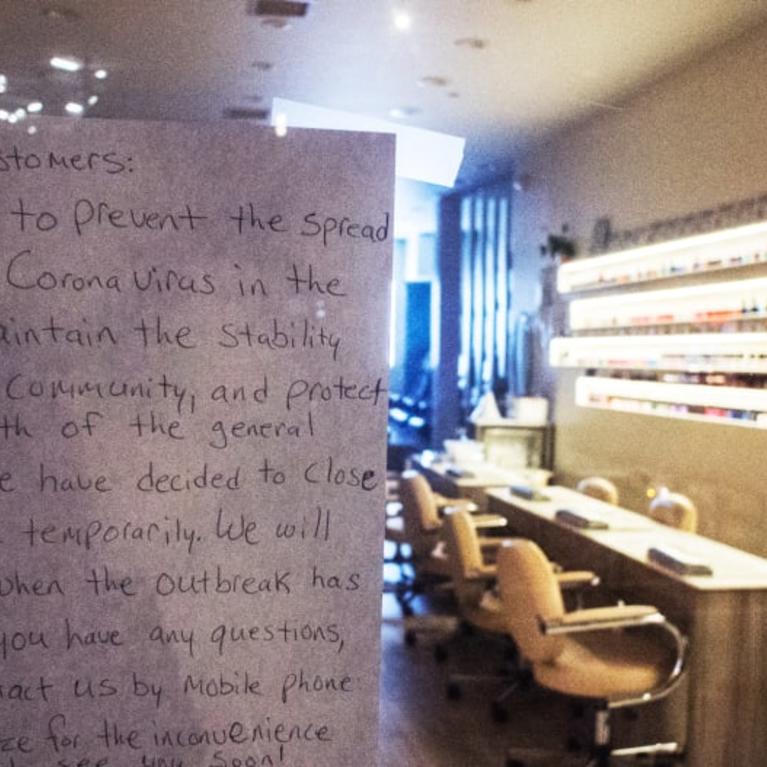 stomers:
to prevent the spread
Corona virus in the
aintain the stability
community, and protect
th of the general
e have decided to close
temporarily. We will
when the outbreak has
you have any questions,
act us by mobile phone
ze for the inconvenience
see you soon!